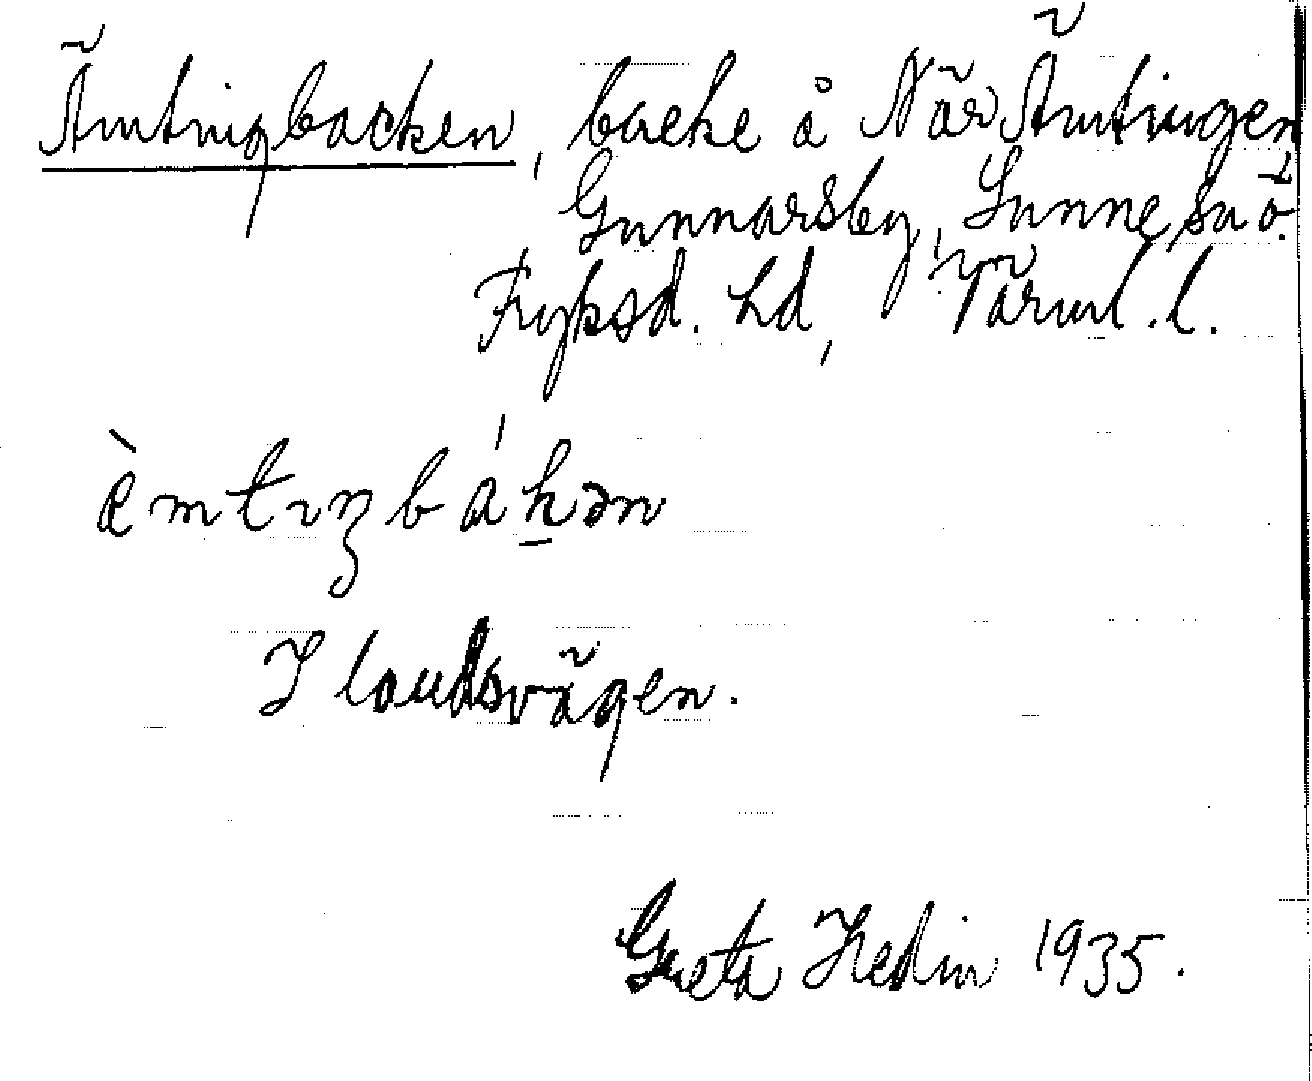 Ämtingbacken, backe å När Ämtingen
Gunnarsby, Sunne sn ö.
Fryksd. hd, Värml. l.
èmtıŋbákən
I landsvägen.
Greta Hedin 1935.